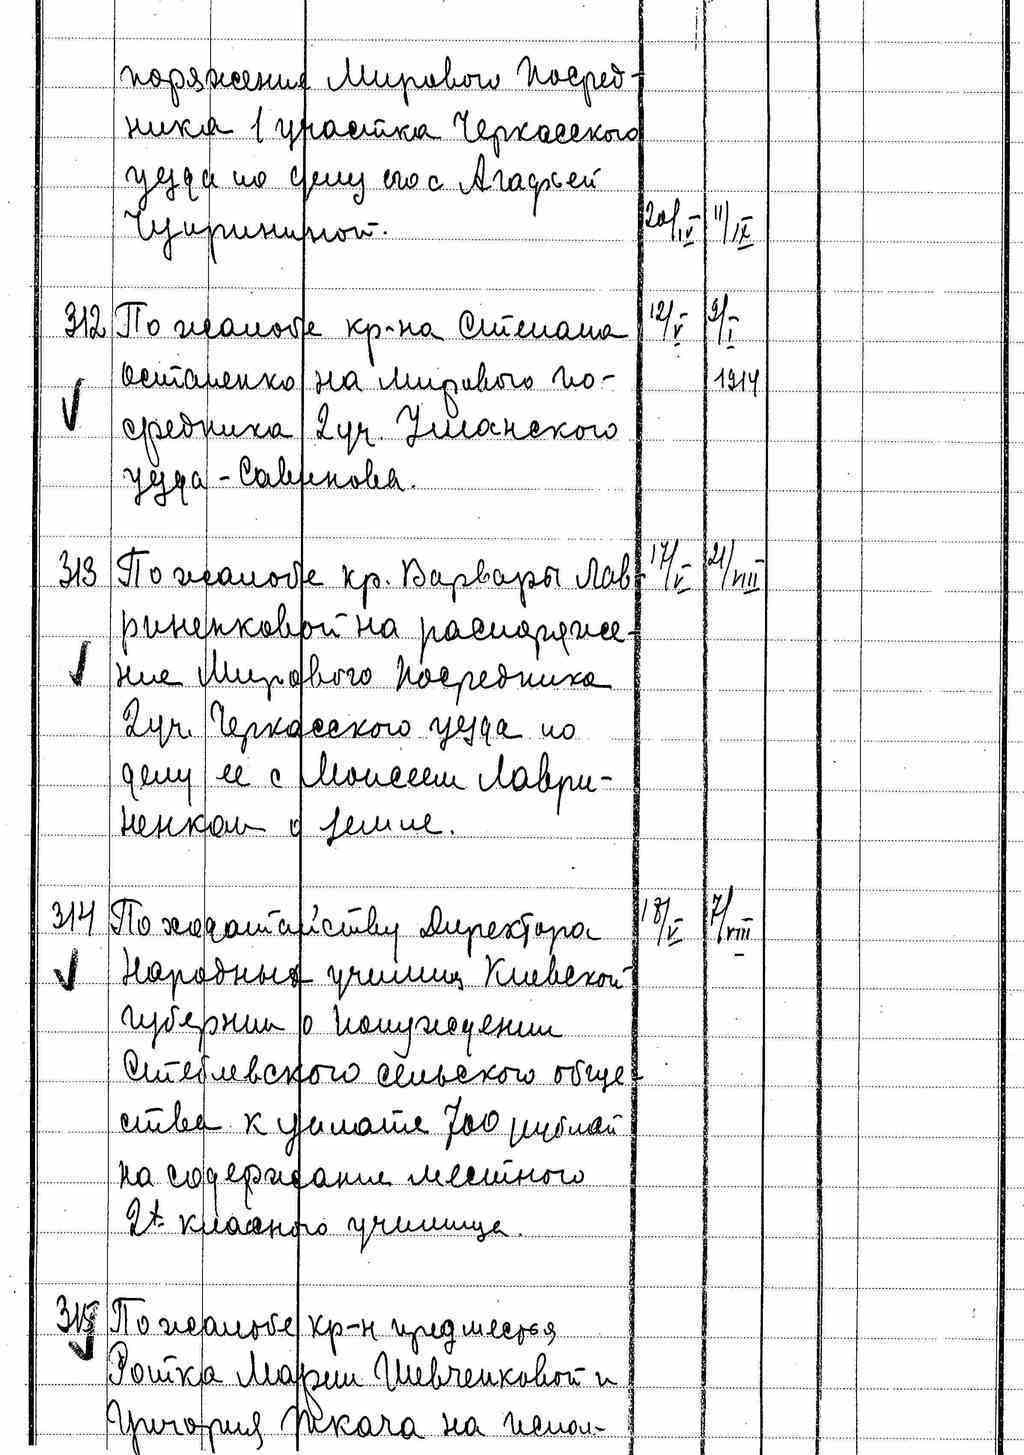 поряжения Мирового Посред-
ника 1 участка Черкасского
уезда по делу его с Агафьей
Чуприниной. 20/IV 11/IX
312 По жалобе кр-на Степана 12/V 9/I
Остапенко на мирового по- 1914
средника 2 уч. Уманского
уезда - Савинова.
313 По жалобе кр. Варвары Лав- 17/V 21/VIII
риненковой на распоряже-
ние Мирового Посредника
2 уч. Черкасского уезда по
делу ее с Моисеем Лаври-
ненком о земле.
314 По ходатайству Директора 18/V 7/VIII
Народных училищ Киевской
губернии о понуждении
Стеблевского сельского обще-
ства к уплате 700 рублей
на содержание местного
2х классного училища.
315 По жалобе кр-н предместья
Ротка Марии Шевченковой и
Григория Ткача на непол-